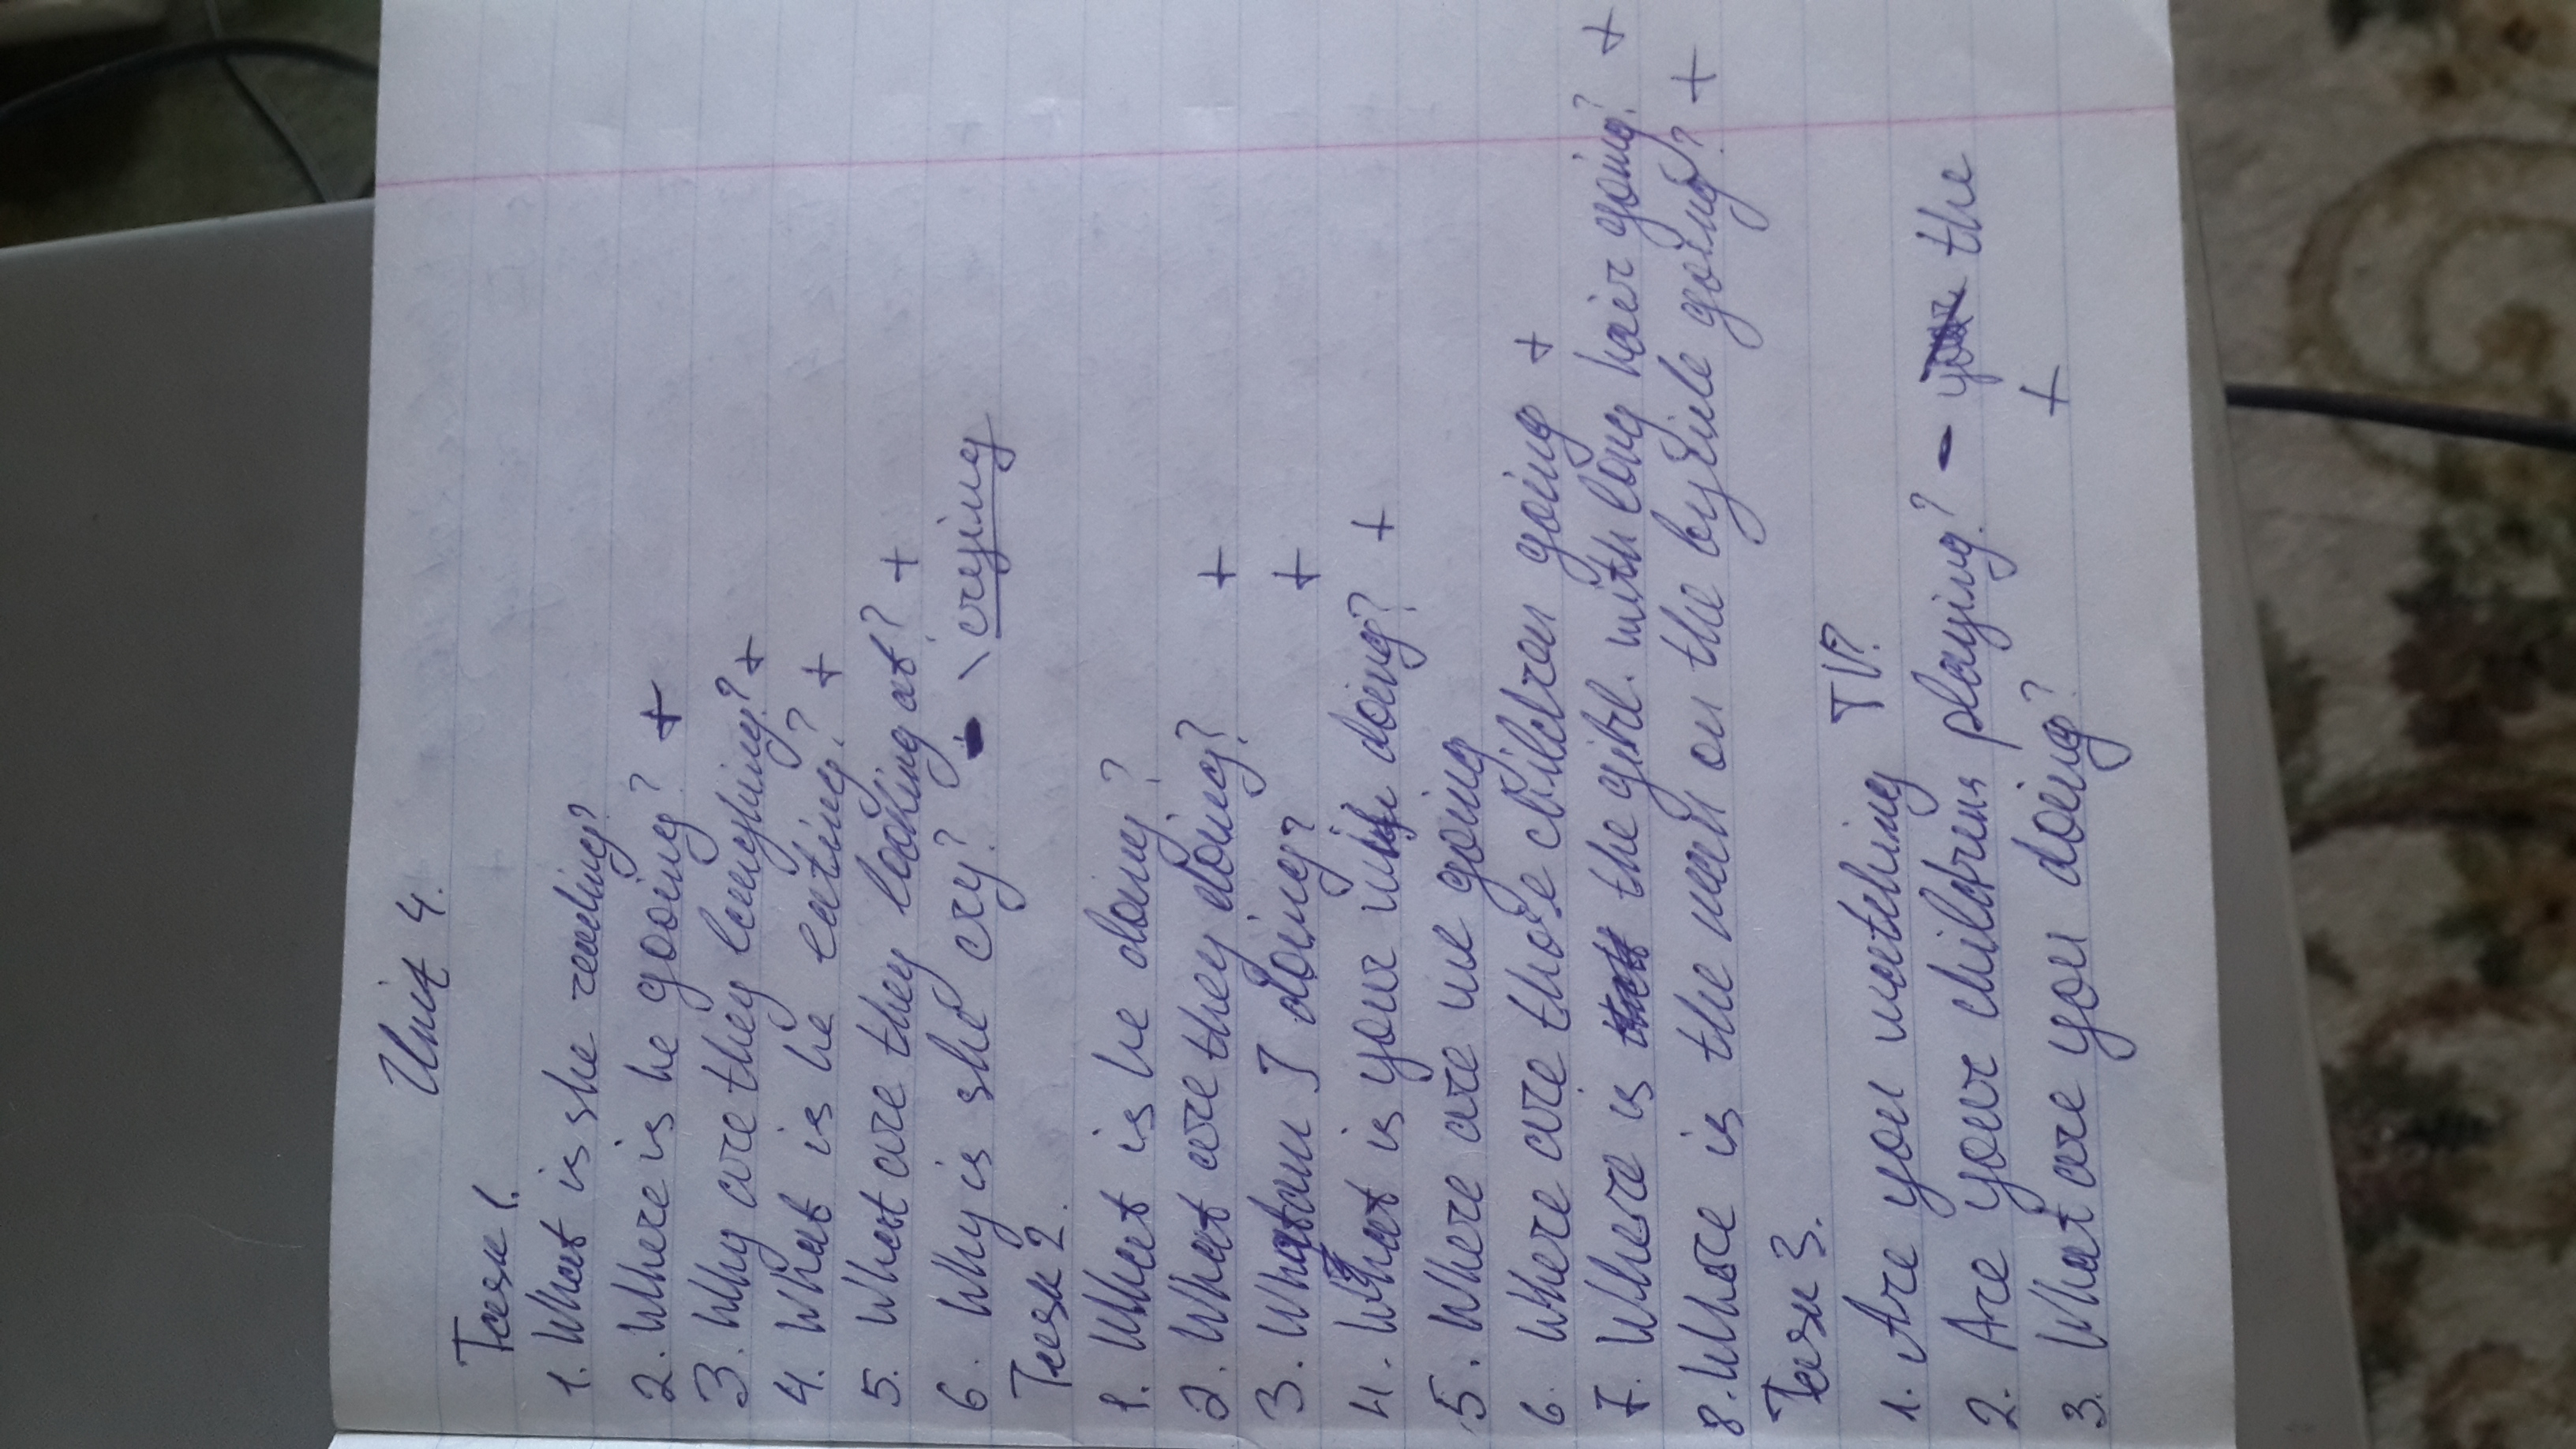 Unit 4.
Task 1.
1. What is she reading?
2. Where is he gooing? +
3. Why are they laughing? +
4. What is he eating? +
5. What are they looking at? +
6. Why is she cry? - \ crying
Task 2.
1. What is he doing?
2. What are they doing? +
3. What am I doing? +
4. What is your wife doing? +
5. Where are we going
6. Where are those children going +
7. Where is the girl. with long hair going? +
8. Where is the man on the bycicle going? +
Task 3.
1. Are you watching TV?
2. Are your childrens playing? - your the
3. What are you doing? +